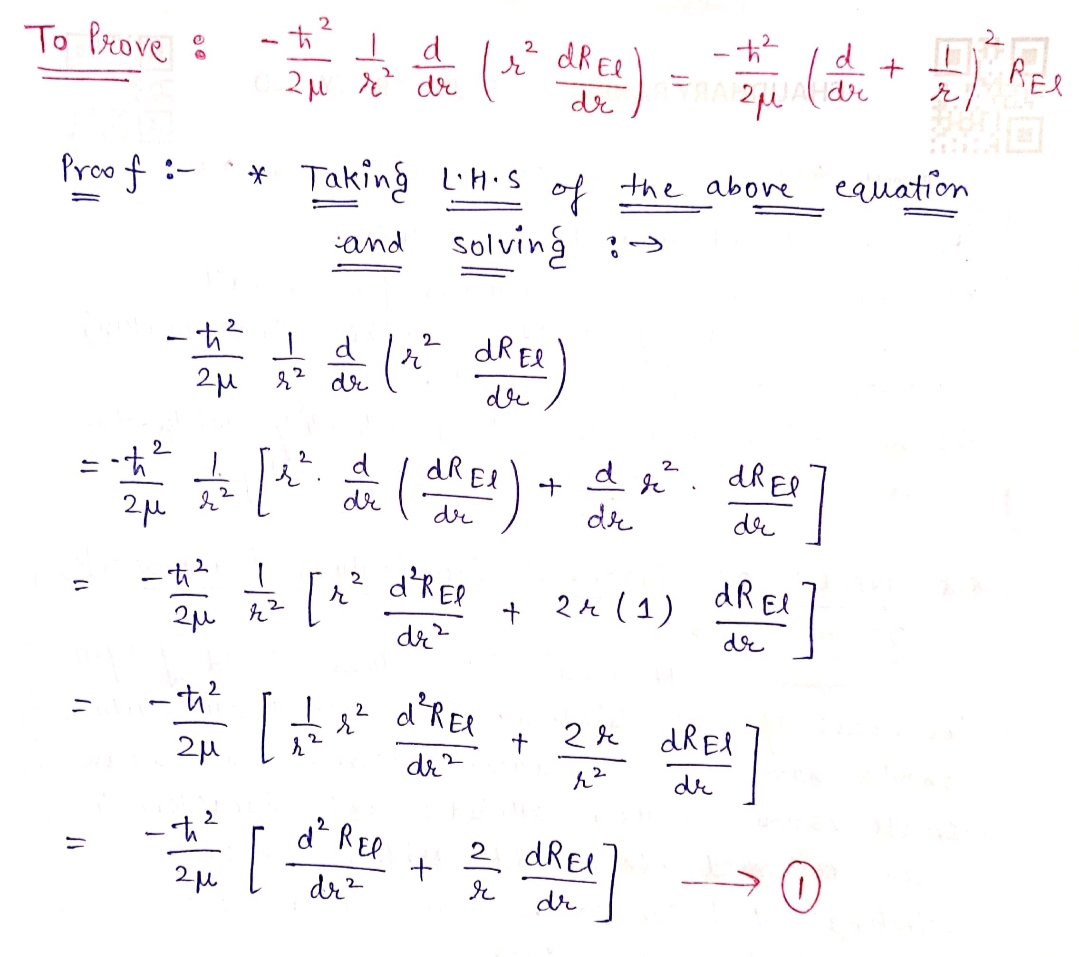 To Prove : $-\frac{\hbar^2}{2\mu} \frac{1}{r^2} \frac{d}{dr} \left( r^2 \frac{dR_{El}}{dr} \right) = \frac{-\hbar^2}{2\mu} \left( \frac{d}{dr} + \frac{1}{r} \right)^2 R_{El}$
Proof :- * Taking L.H.S of the above equation
and solving : →
$-\frac{\hbar^2}{2\mu} \frac{1}{r^2} \frac{d}{dr} \left( r^2 \frac{dR_{El}}{dr} \right)$
$= -\frac{\hbar^2}{2\mu} \frac{1}{r^2} \left[ r^2 \cdot \frac{d}{dr} \left( \frac{dR_{El}}{dr} \right) + \frac{d}{dr} r^2 \cdot \frac{dR_{El}}{dr} \right]$
$= \frac{-\hbar^2}{2\mu} \frac{1}{r^2} \left[ r^2 \frac{d^2R_{El}}{dr^2} + 2r(1) \frac{dR_{El}}{dr} \right]$
$= \frac{-\hbar^2}{2\mu} \left[ \frac{1}{r^2} r^2 \frac{d^2R_{El}}{dr^2} + \frac{2r}{r^2} \frac{dR_{El}}{dr} \right]$
$= \frac{-\hbar^2}{2\mu} \left[ \frac{d^2R_{El}}{dr^2} + \frac{2}{r} \frac{dR_{El}}{dr} \right]$ → ①